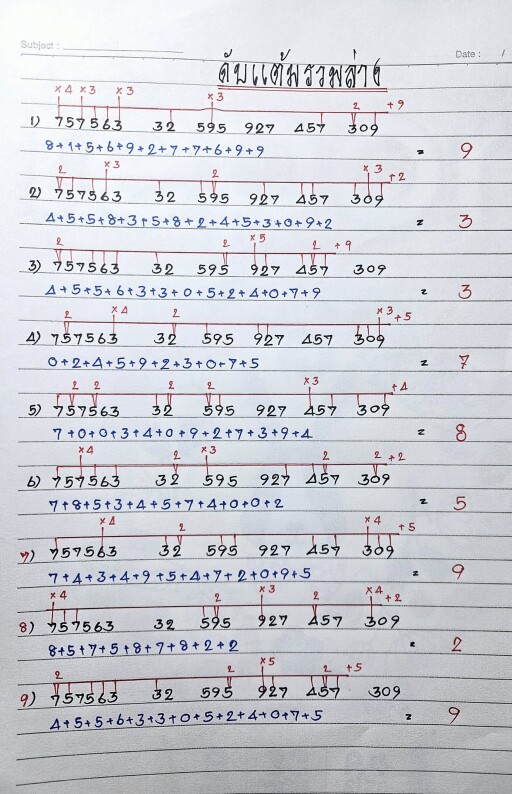 Subject :
Date : /
ดับแต้มรวมล่าง
x4 x3 x3 x3 2 +9
1) 757563 32 595 927 457 309
8+1+5+6+9+2+7+7+6+9+9 = 9
2 x3 2 x3 +2
2) 757563 32 595 927 457 309
4+5+5+8+3+5+8+2+4+5+3+0+9+2 = 3
2 2 x5 2 +9
3) 757563 32 595 927 457 309
4+5+5+6+3+3+0+5+2+4+0+7+9 = 3
2 x4 2 x3 +5
4) 757563 32 595 927 457 309
0+2+4+5+9+2+3+0+7+5 = 7
2 2 2 2 x3 +4
5) 757563 32 595 927 457 309
7+0+0+3+4+0+9+2+7+3+9+4 = 8
x4 2 x3 2 2 +2
6) 757563 32 595 927 457 309
7+8+5+3+4+5+7+4+0+0+2 = 5
x4 2 x4 +5
7) 757563 32 595 927 457 309
7+4+3+4+9+5+4+7+2+0+9+5 = 9
x4 2 x3 2 x4 +2
8) 757563 32 595 927 457 309
8+5+7+5+8+7+8+2+2 = 2
2 2 x5 2 +5
9) 757563 32 595 927 457 309
4+5+5+6+3+3+0+5+2+4+0+7+5 = 9